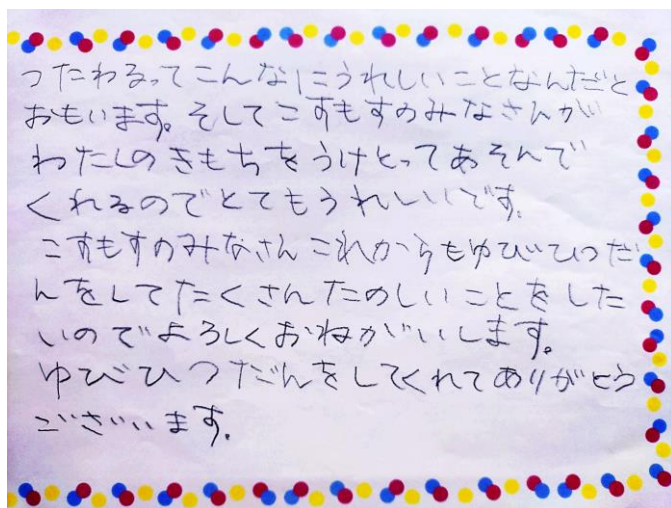 つたわるってこんなにうれしいことなんだと
おもいます。そしてこすもすのみなさんが
わたしのきもちをうけとってあそんで
くれるのでとてもうれしいです。
こすもすのみなさんこれからもゆびひつだ
んをしてたくさんたのしいことをした
いのでよろしくおねがいします。
ゆびひつだんをしてくれてありがとう
ございます。